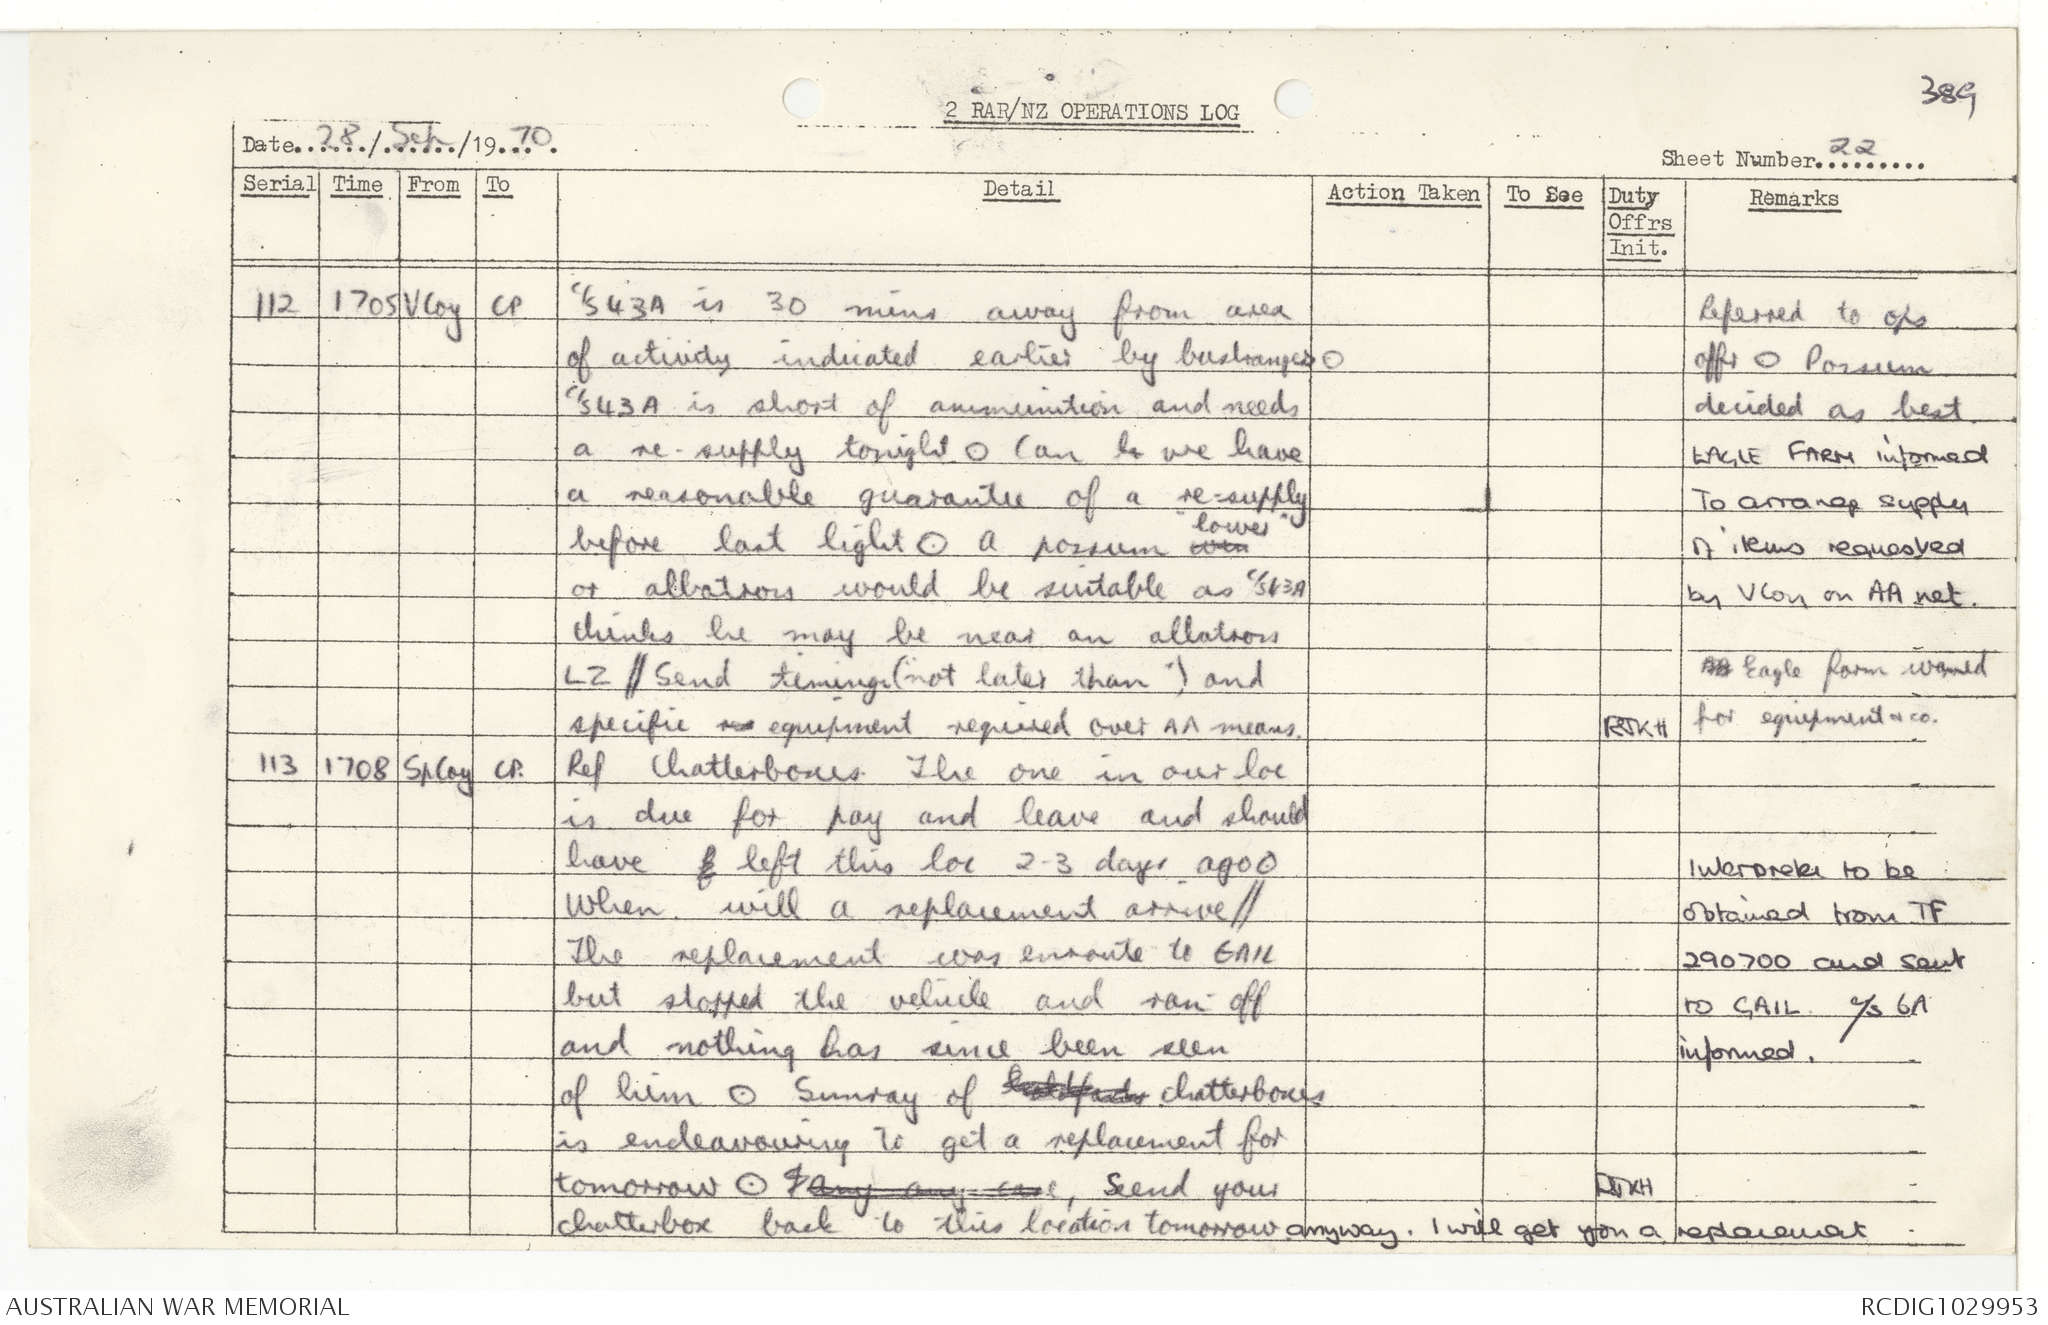 389
2 RAR/NZ OPERATIONS LOG
Date..28../.Sep../19..70.
Sheet Number..22.......
Serial Time From To Detail Action Taken To See Duty Offrs Init. Remarks
112 1705 VCoy CP C/S43A is 30 mins away from area Referred to ops
of activity indicated earlier by bushranger ⊙ offr ⊙ Possum
C/S43A is short of ammunition and needs decided as best.
a re-supply tonight ⊙ Can we have EAGLE FARM informed
a reasonable guarantee of a re-supply To arrange supply
before last light ⊙ A possum "lower" of items requested
or albatross would be suitable as C/S43A by VCoy on AA net.
thinks he may be near an albatross
LZ // Send timings (not later than ") and Eagle farm warned
specific equipment required over AA means. RJKH for equipment & co.
113 1708 SpCoy CP. Ref Chatterboxes. The one in our loc
is due for pay and leave and should
have left this loc 2-3 days ago ⊙ Interpreter to be
When will a replacement arrive // obtained from TF
The replacement was enroute to GAIL 290700 and sent
but stopped the vehicle and ran off to GAIL. C/S 6A
and nothing has since been seen informed.
of him ⊙ Sunray of chatterboxes
is endeavouring to get a replacement for
tomorrow ⊙ any case, Send your RJKH
chatterbox back to this location tomorrow anyway. I will get you a replacement
AUSTRALIAN WAR MEMORIAL
RCDIG1029953